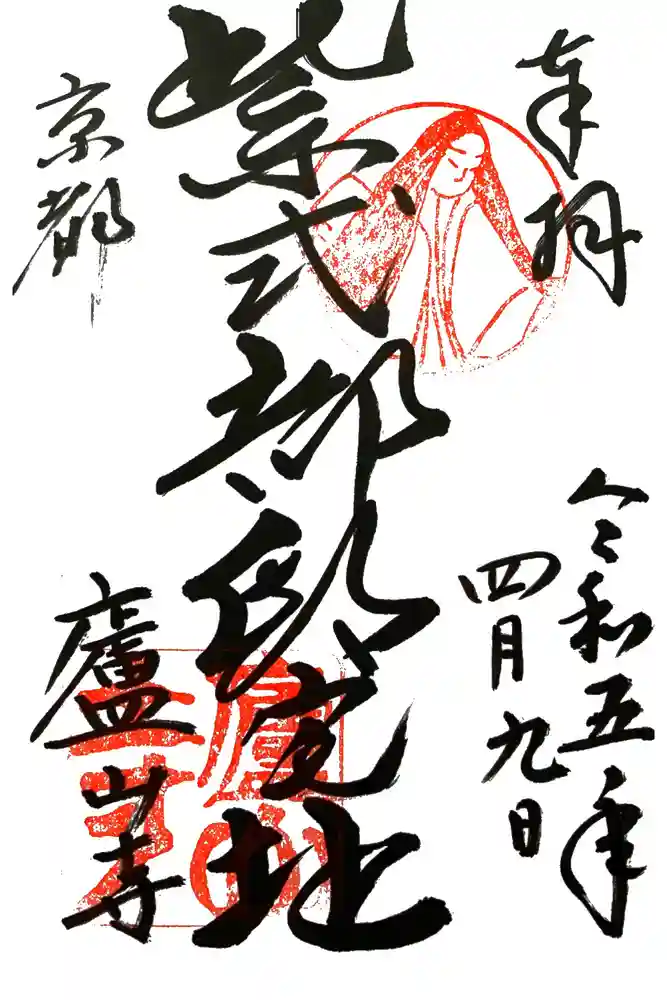 奉拝
令和五年
四月九日
紫式部邸宅址
京都
廬山寺